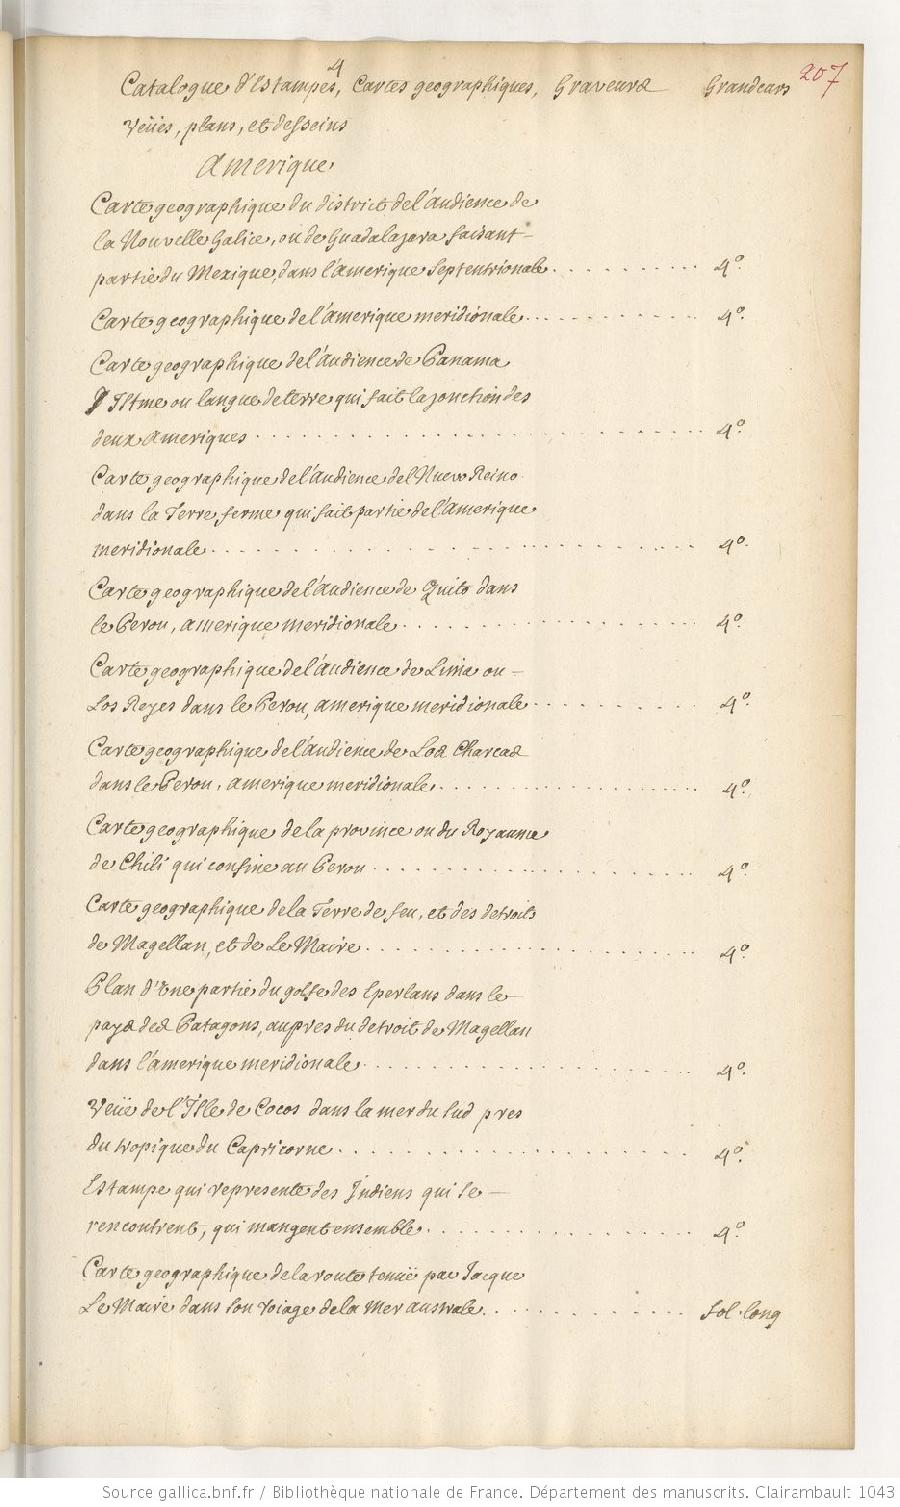 4
207
Catalogue d'Estampes, Cartes geographiques, Graveures Grandeurs
Veües, plans, et desseins
Amerique
Carte geographique du district de l'Audience de
la Nouvelle Galice, ou de Guadalajara faisant
partie du Mexique dans l'amerique septentrionale. 4°.
Carte geographique de l'Amerique meridionale. 4°.
Carte geographique de l'Audience de Panama
Istme ou langue de terre qui fait la jonction des
deux Ameriques 4°.
Carte geographique de l'Audience del Nuevo Reino
dans la Terre ferme qui fait partie de l'Amerique
meridionale 4°.
Carte geographique de l'Audience de Quito dans
le Perou, amerique meridionale. 4°.
Carte geographique de l'Audience de Lima ou
Los Reyes dans le Perou, amerique meridionale 4°.
Carte geographique de l'Audience de Los Charcas
dans le Perou, amerique meridionale. 4°.
Carte geographique de la province ou du Royaume
de Chili qui confine au Perou 4°.
Carte geographique de la Terre de feu, et des detroits
de Magellan, et de Le Maire 4°.
Plan d'Une partie du golfe des Eperlans dans le
pays des Patagons, aupres du detroit de Magellan
dans l'amerique meridionale 4°.
Veüe de l'Isle de Cocos dans la mer du sud pres
du tropique du Capricorne 4°.
Estampe qui represente des Indiens qui se
rencontrent, qui mangent ensemble. 4°.
Carte geographique de la route tenuë par Jacque
Le Maire dans son voiage de la Mer australe. fol. long
Source gallica.bnf.fr / Bibliothèque nationale de France. Département des manuscrits. Clairambault 1043